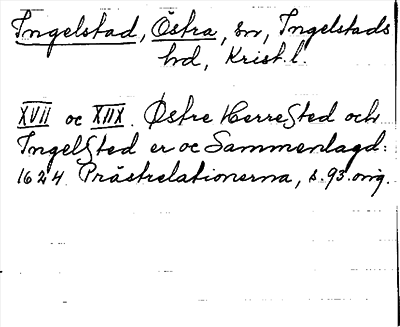 Ingelstad, Östra, sn, Ingelstads
hd, Krist. l.
XVII oc XIIX. Østre Herrested och
Ingelsted er oc Sammenlagd:
1624 Prästrelationerna, s. 93. orig.